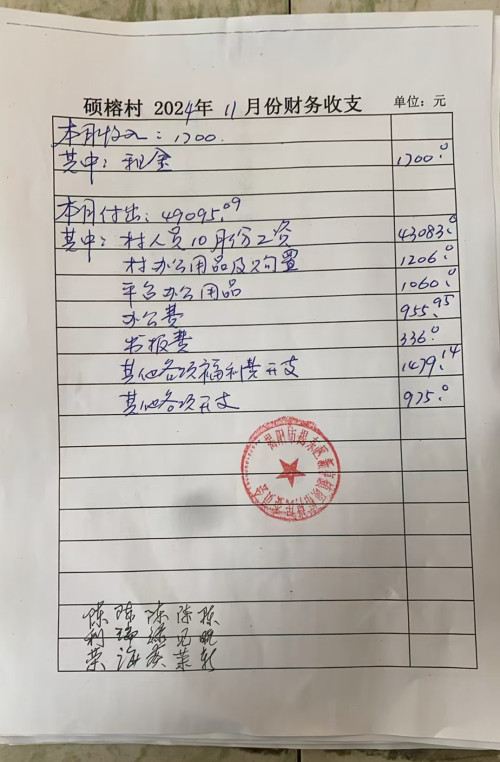 硕榕村 2024年 11月份财务收支 单位：元
本月收入：1700.
其中：租金 1700.0
本月付出：49095.09
其中：村人员10月份工资 43083.0
村办公用品及购置 1206.0
平台办公用品 1060.0
办公费 955.95
书报费 336.0
其他各项福利费开支 1479.14
其他各项开支 975.0
揭阳市揭东区
陈 陈 陈 陈 陈
利 瑞
荣 海